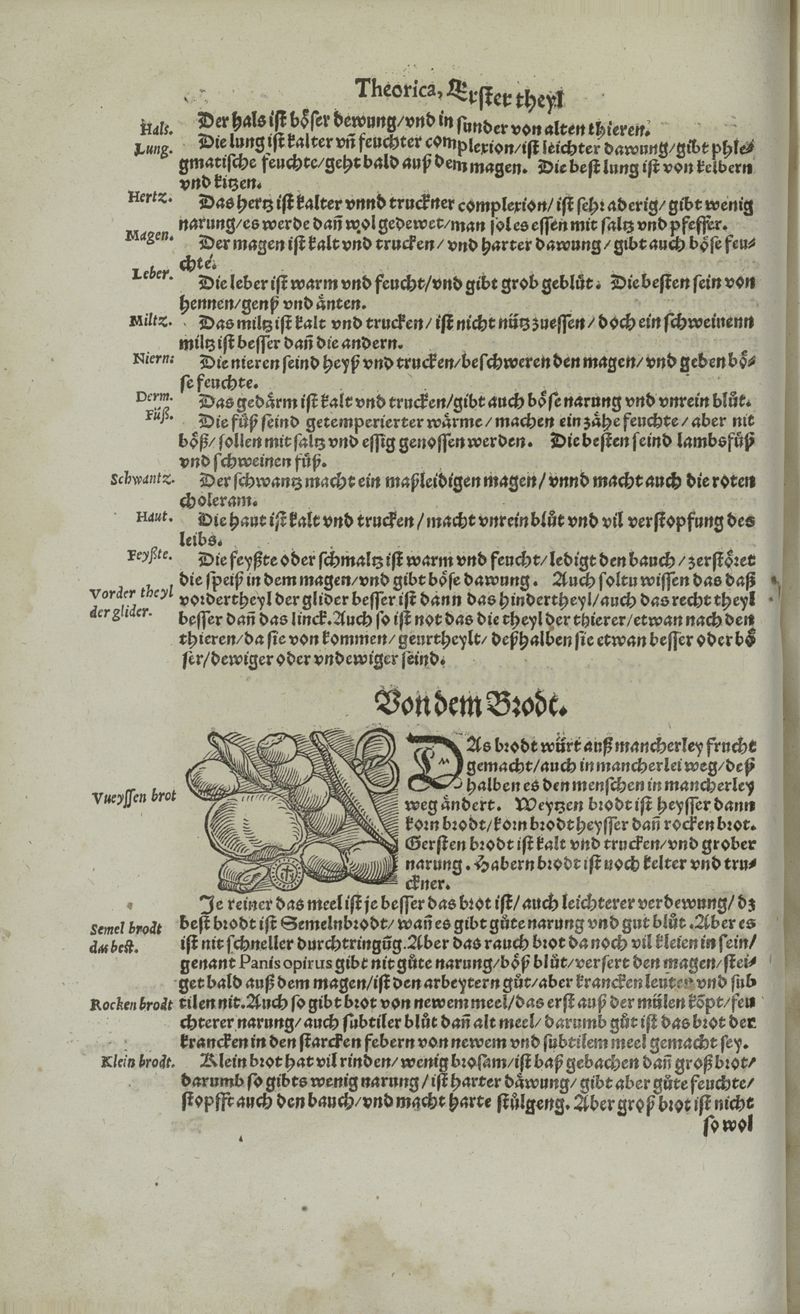 Theorica, Erster theyl
Hals. Der hals ist böser dewung/vnd in sunder von alten thieren.
Lung. Die lung ist kalter vñ feuchter complexion/ist leichter dawung/gibt phle⸗
gmatische feuchte/geht bald auß dem magen. Die best lung ist von kelbern
vnd kitzen.
Hertz. Das hertz ist kalter vnnd truckner complexion/ist sehr aderig/gibt wenig
narung/es werde dañ wol gedewet/man sol es essen mit saltz vnd pfeffer.
Magen. Der magen ist kalt vnd trucken/vnd harter dawung/gibt auch böse feu⸗
chte.
Leber. Die leber ist warm vnd feucht/vnd gibt grob geblůt. Die besten sein von
hennen/genß vnd änten.
Miltz. Das miltz ist kalt vnd trucken/ist nicht nütz zuessen/doch ein schweinenn
miltz ist besser dañ die andern.
Niern: Die nieren seind heyß vnd trucken/beschweren den magen/vnd geben bö⸗
se feuchte.
Derm. Das gedärm ist kalt vnd trucken/gibt auch böse narung vnd vnrein blůt.
Füß. Die füß seind getemperierter wärme/machen ein zähe feuchte/aber nit
böß/sollen mit saltz vnd essig genossen werden. Die besten seind lambsfüß
vnd schweinen füß.
Schwantz. Der schwantz macht ein maßleidigen magen/vnnd macht auch die roten
choleram.
Haut. Die haut ist kalt vnd trucken/macht vnrein blůt vnd vil verstopfung des
leibs.
Feyßte. Die feyßte oder schmaltz ist warm vnd feucht/ledigt den bauch/zerstöret
die speiß in dem magen/vnd gibt böse dawung. Auch soltu wissen das daß
Vorder theyl vordertheyl der glider besser ist dann das hindertheyl/auch das recht theyl
der glider. besser dañ das linck. Auch so ist not das die theyl der thierer/etwan nach den
thieren/da sie von kommen/geurtheylt/deßhalben sie etwan besser oder bö
ser/dewiger oder vndewiger seind.
Von dem Brodt.
DAs brodt würt auß mancherley frucht
gemacht/auch in mancherlei weg/deß
halben es den menschen in mancherley
Vueyssen brot weg ändert. Weytzen brodt ist heysser dann
korn brodt/korn brodt heysser dañ rocken brot.
Gersten brodt ist kalt vnd trucken/vnd grober
narung. Habern brodt ist noch kelter vnd tru⸗
ckner.
Je reiner das meel ist je besser das brot ist/auch leichterer verdewung/dz
Semel brodt best brodt ist Semelnbrodt/wañ es gibt gůte narung vnd gut blůt. Aber es
das best. ist nit schneller durchtringũg. Aber das rauch brot da noch vil kleien in sein/
genant Panis opirus gibt nit gůte narung/böß blůt/versert den magen/stei⸗
get bald auß dem magen/ist den arbeytern gůt/aber krancken leuten vnd sub
Rocken brodt tilen nit. Auch so gibt brot von newem meel/das erst auß der mülen köpt/feu
chterer narung/auch subtiler blůt dañ alt meel/darumb gůt ist das brot der
krancken in den starcken febern von newem vnd subtilem meel gemacht sey.
Klein brodt. Klein brot hat vil rinden/wenig brosam/ist baß gebachen dañ groß brot/
darumb so gibts wenig narung/ist harter däwung/gibt aber gůte feuchte/
stopfft auch den bauch/vnd macht harte stůlgeng. Aber groß brot ist nicht
so wol